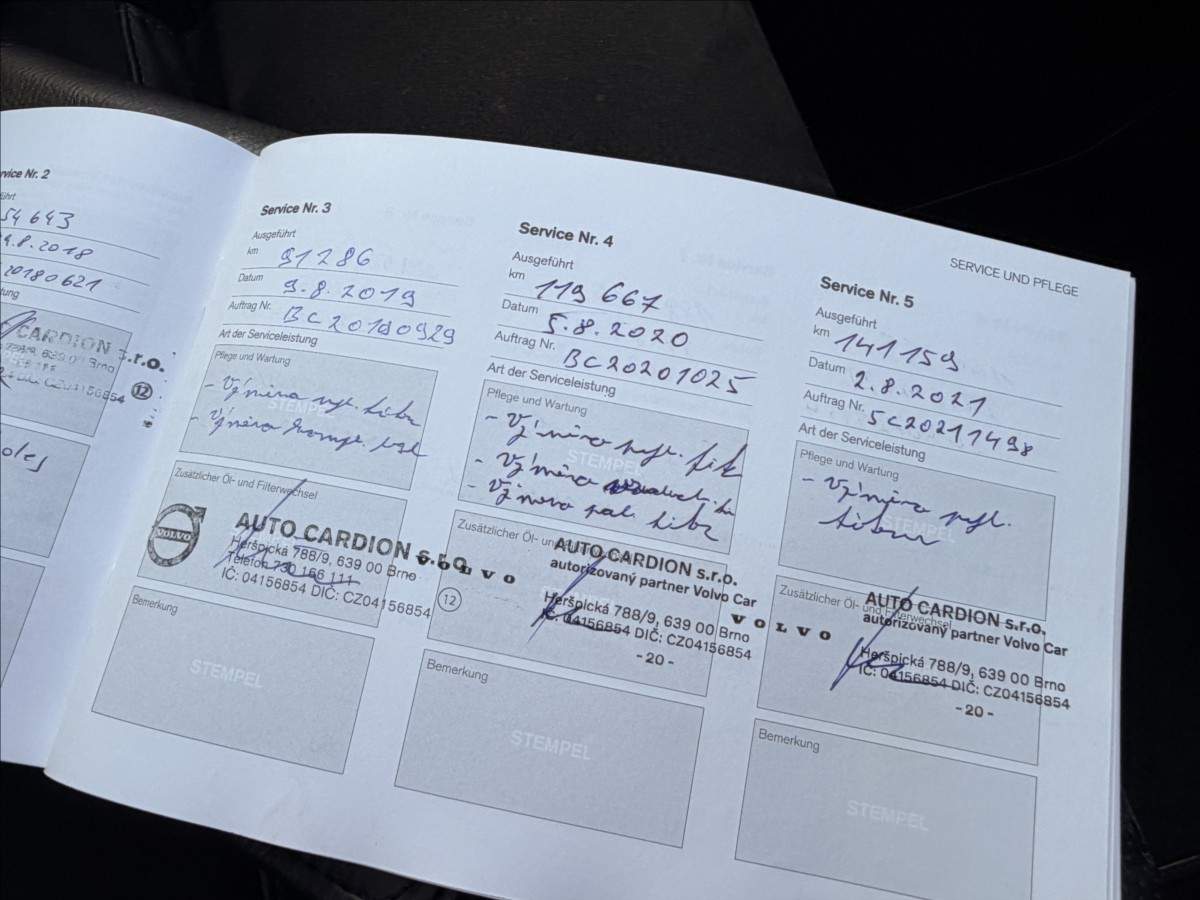 rvice Nr. 2
führt
54 643
.8.2018
20180621
tung
CARDION s.r.o.
639 00 Brno
DIČ: CZ04156854
12
Service Nr. 3
Ausgeführt
km 91286
Datum 9.8.2019
Auftrag Nr. BC20190929
Art der Serviceleistung
Pflege und Wartung
STEMPEL
- Výměna
- Výměna
Zusätzlicher Öl- und Filterwechsel
VOLVO
AUTO CARDION s.r.o.
Heršpická 788/9, 639 00 Brno
Telefon 730 166 111
IČ: 04156854 DIČ: CZ04156854
12
Bemerkung
STEMPEL
Service Nr. 4
Ausgeführt
km 119 667
Datum 5.8.2020
Auftrag Nr. BC20201025
Art der Serviceleistung
Pflege und Wartung
STEMPEL
- Výměna
- Výměna
- Výměna
Zusätzlicher Öl- un
VOLVO
AUTO CARDION s.r.o.
autorizovaný partner Volvo Car
Heršpická 788/9, 639 00 Brno
IČ: 04156854 DIČ: CZ04156854
- 20 -
Bemerkung
STEMPEL
SERVICE UND PFLEGE
Service Nr. 5
Ausgeführt
km 141159
Datum 2.8.2021
Auftrag Nr. SC20211498
Art der Serviceleistung
Pflege und Wartung
STEMPEL
- Výměna
Zusätzlicher Öl- und Filterwechsel
VOLVO
AUTO CARDION s.r.o.
autorizovaný partner Volvo Car
Heršpická 788/9, 639 00 Brno
IČ: 04156854 DIČ: CZ04156854
- 20 -
Bemerkung
STEMPEL